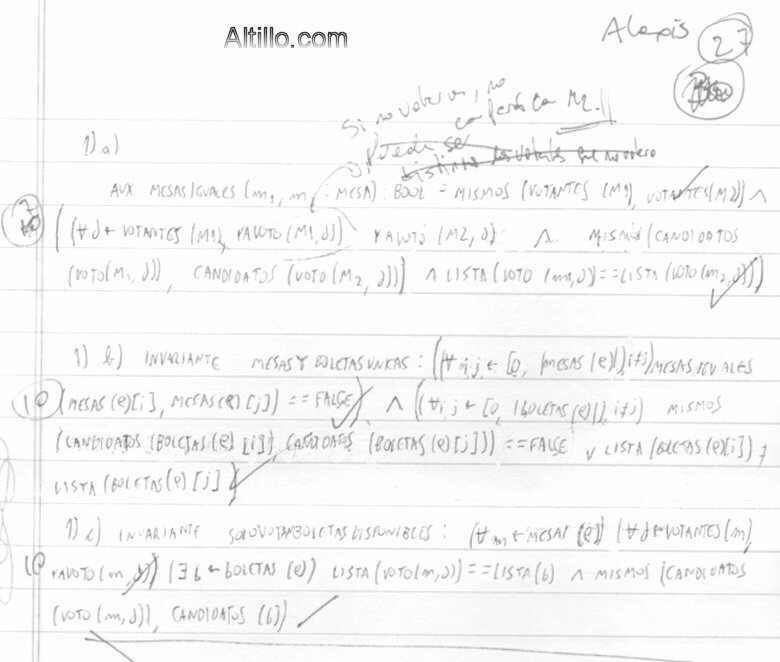 Altillo.com
Alexis
27
Si no votaron, no
comparás con M2.
Puede ser
distinto los votantes que no votaron
1) a)
AUX MESASIGUALES (m1, m : MESA) : BOOL = MISMOS (VOTANTES (M1), VOTANTES(M2)) ∧
7
((∀ d ← VOTANTES (M1), YAVOTO (M1, d)) YAVOTO (M2, d) ∧ MISMOS (CANDIDATOS
(VOTO(M1, d)), CANDIDATOS (VOTO(M2, d))) ∧ LISTA (VOTO (m1, d)) == LISTA (VOTO (m2, d)))
1) b) INVARIANTE MESASYBOLETASUNICAS : ((∀ i, j ← [0, |MESAS (e)|), i≠j) MESASIGUALES
10 (MESAS (e)[i], MESAS(e)[j]) == FALSE) ∧ ((∀ i, j ← [0, |BOLETAS(e)|), i≠j) MISMOS
(CANDIDATOS (BOLETAS(e)[i]), CANDIDATOS (BOLETAS(e)[j])) == FALSE ∨ LISTA (BOLETAS(e)[i]) ≠
LISTA (BOLETAS(e)[j])
1) c) INVARIANTE SOLOVOTANBOLETASDISPONIBLES : (∀ m ← MESAS (e)) (∀ d ← VOTANTES (m),
10 YAVOTO (m, d)) (∃ b ← BOLETAS (e)) LISTA (VOTO(m, d)) == LISTA (b) ∧ MISMOS (CANDIDATOS
(VOTO (m, d)), CANDIDATOS (b))